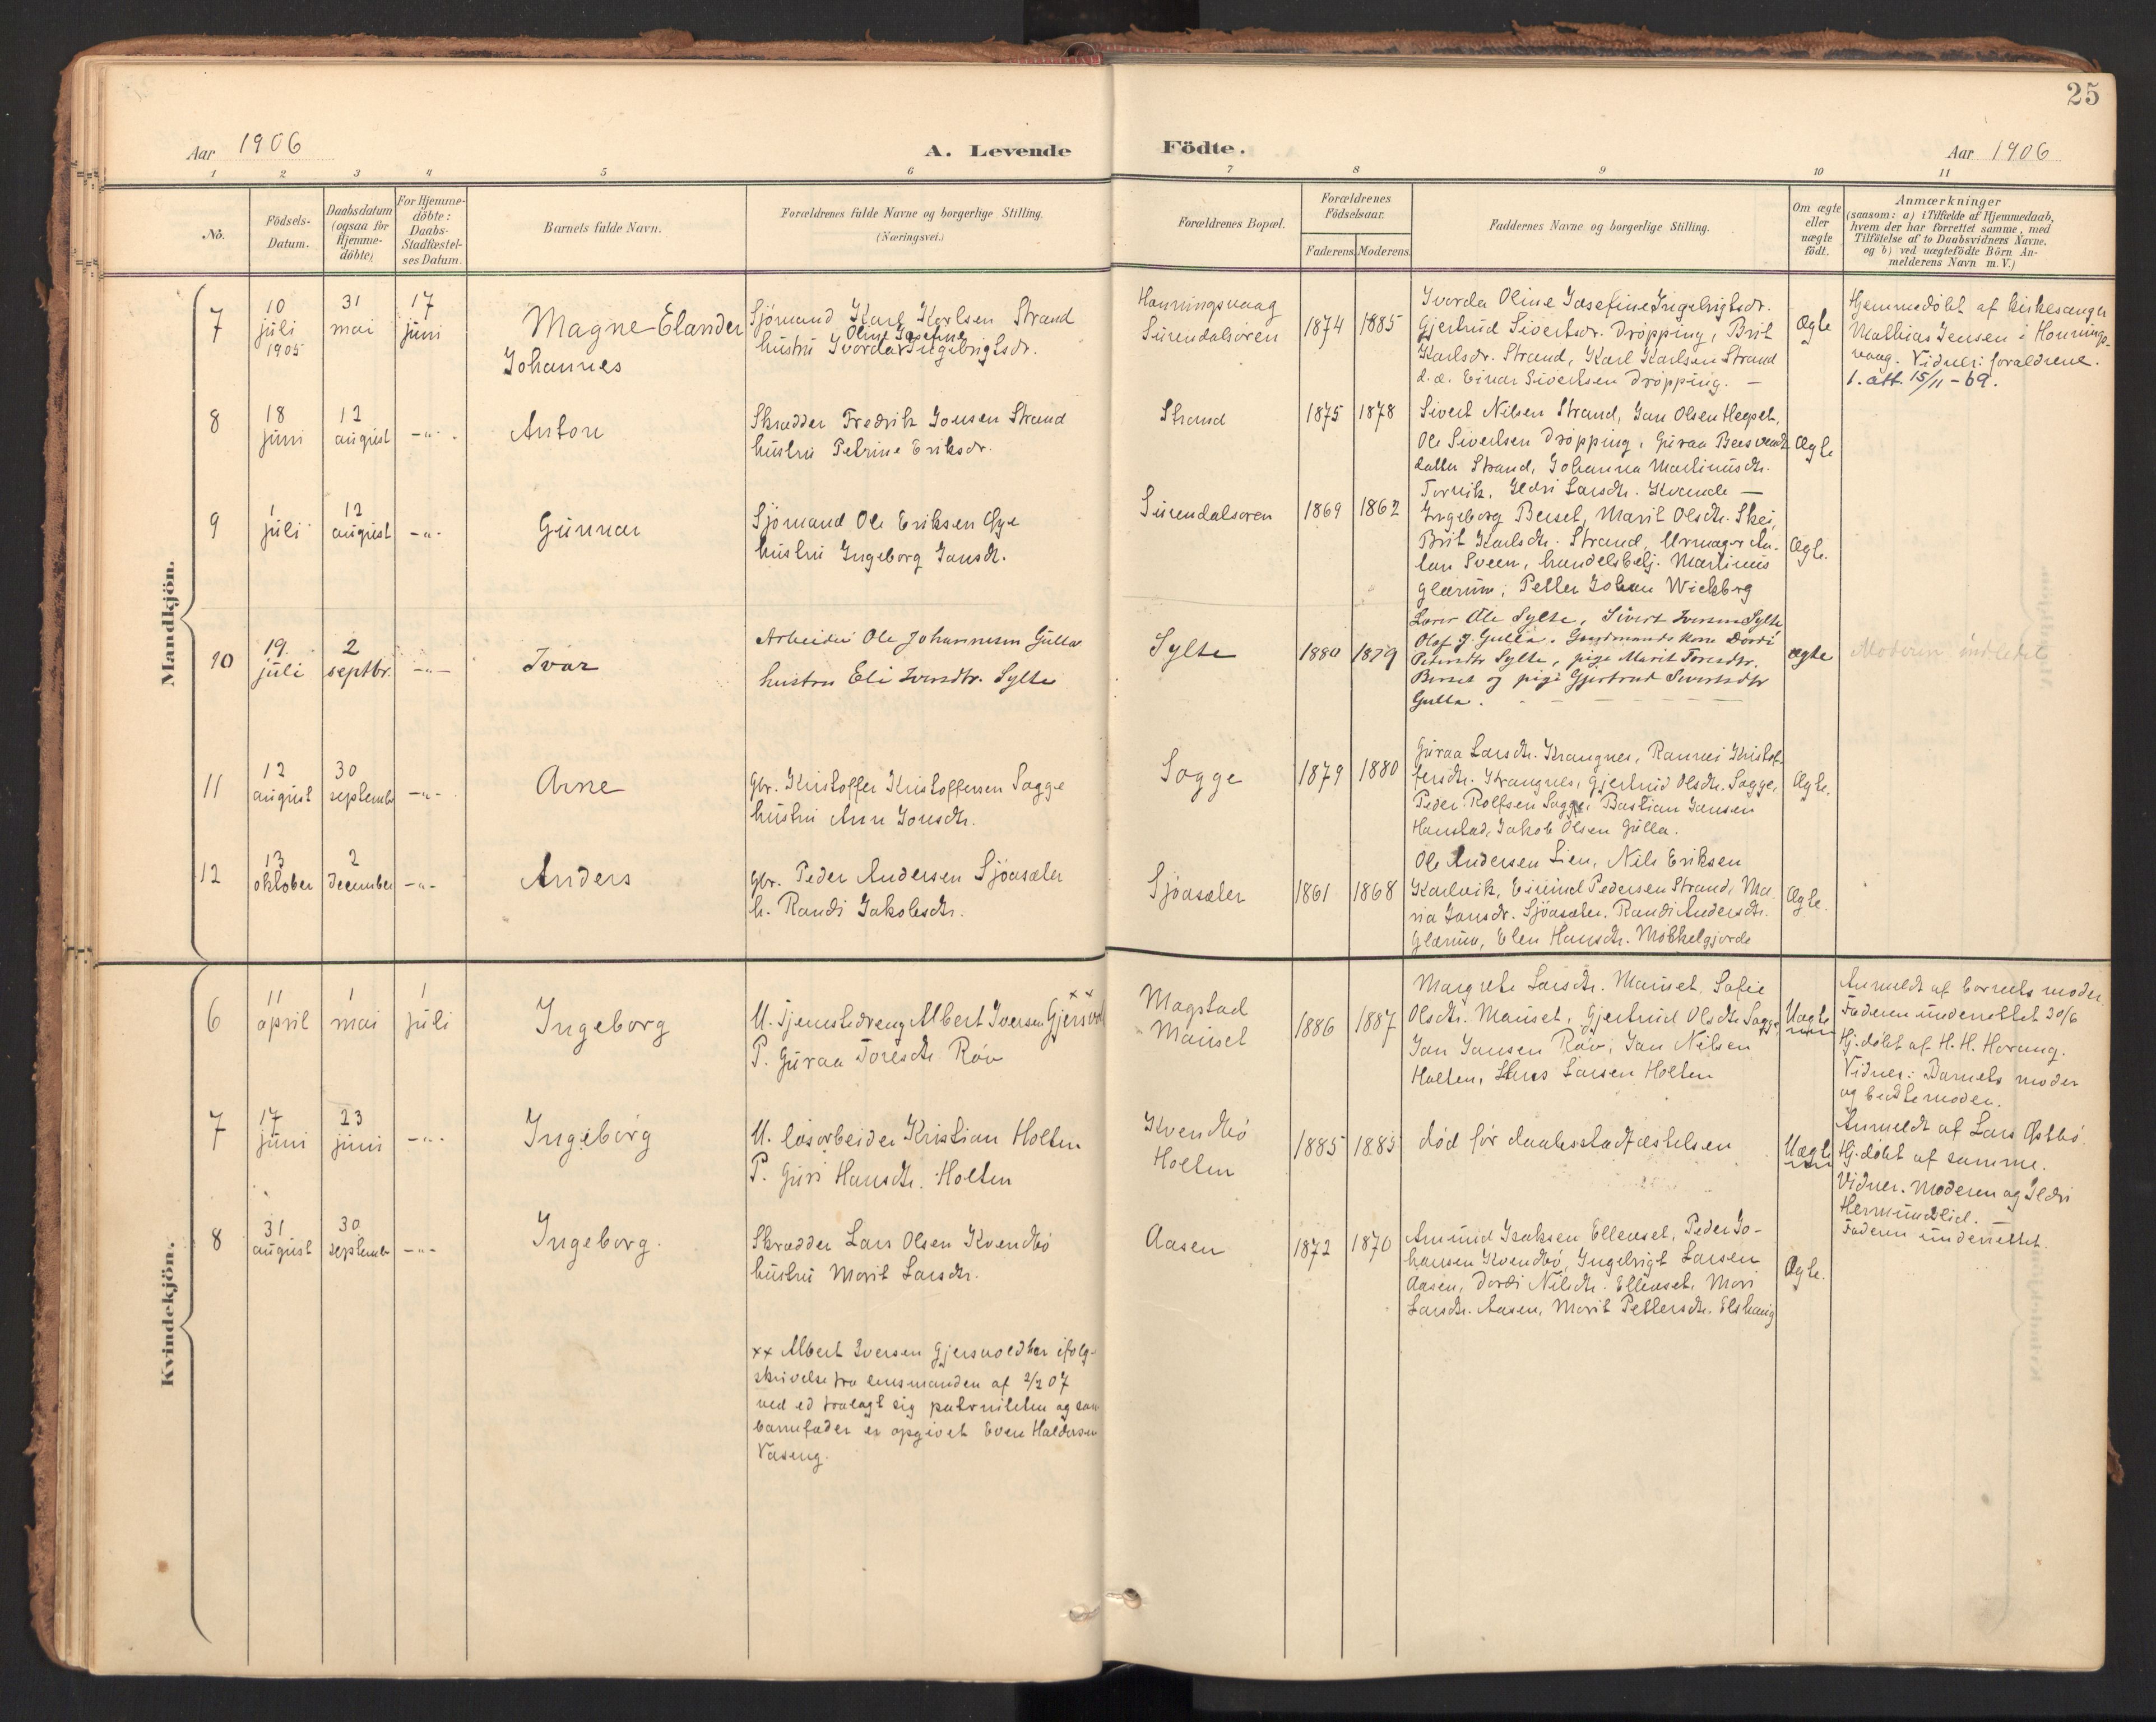 25
Aar 1906
A. Levende
Födte.
Aar 1906
1 2 3 4 5 6 7 8 9 10 11
No.
Födsels-
Datum.
Daabsdatum
(ogsaa for
Hjemme-
döbte)
For Hjemme-
döbte:
Daabs-
Stadfæstel-
ses Datum.
Barnets fulde Navn.
Forældrenes fulde Navne og borgerlige Stilling.
(Næringsvei.)
Forældrenes Bopæl.
Forældrenes
Födselsaar.
Faderens. Moderens.
Faddernes Navne og borgerlige Stilling.
Om ægte
eller
uægte
födt.
Anmærkninger
(saasom: a) i Tilfælde af Hjemmedaab,
hvem der har forrettet samme, med
Tilföielse af to Daabsvidners Navne.
og b) ved uægtefödte Börn An-
melderens Navn m. V.)
Mandkjön.
7
10
juli
1905
31
mai
17
juni
Magne Elander
Johannes
Sjömand Karl Karlsen Strand
Oline Josefine
hustru Ivorda Ingebrigtsdr.
Honningsvaag
Surendalsören
1874
1885
Ivorda Oline Josefine Ingebrigtsdr.
Gjertrud Sivertsdr. Dröpping, Brit
Karlsdr. Strand, Karl Karlsen Strand
d. æ. Einar Sivertsen Dröpping. —
Ægte
Hjemmedöbt af kirkesanger
Mathias Jensen i Honnings-
vaag. Vidner: forældrene.
1. att. 15/11-69.
8
18
juni
12
august
-"-
Anton
Skrædder Fredrik Jonsen Strand
hustru Petrine Eriksdr.
Strand
1875
1878
Sivert Nilsen Strand, Jon Olsen
Ole Sivertsen Dröpping, Guraa
datter Strand, Johanna Martinusdtr.
Torvik, Ildri Larsdtr. Kvande —
Ægte
9
1
juli
12
august
-"-
Gunnar
Sjömand Ole Eriksen Öye
hustru Ingeborg Jonsdtr.
Surendalsören
1869
1862
Ingeborg Berset, Marit Olsdtr. Skei,
Brit Karlsdtr. Strand, Urmager An-
ton Sveen, handelsbetj. Martinus
Glærum, Petter Johan Wickbrg
Ægte.
10
19.
juli
2
septbr.
-"-
Ivar
Arbeider Ole Johannesen Gulla
hustru Eli Iversdtr. Sylte
Sylte
1880
1879
Lars Ole Sylte, Sivert Iversen Sylte
Olaf J. Gulla. Gaardmandskone Dordi
Petersdtr Sylte, pige Marit Toresdtr.
Berset og pige Gjertrud Sivertsdtr
Gulla.
ægte
Moderen indledet
11
12
august
30
september
-"-
Arne
Gbr. Kristoffer Kristoffersen Sogge
hustru Ane Jonsdtr.
Sogge
1879
1880
Guraa Larsdtr. Krangnes, Rannei Kristof-
fersdtr. Krangnes, Gjertrud Olsdtr. Sogge,
Peder Rolfsen Sogge, Bastian Jansen
Hanstad, Jakob Olsen Gulla.
Ægte.
12
13
oktober
2
december
-"-
Anders
Gbr. Peder Andersen Sjöasæter
h. Randi Jakobsdtr.
Sjöasæter
1861
1868
Ole Andersen Lien, Nils Eriksen
Karlvik, Eivind Pedersen Strand, Ma
ria Jonsdr. Sjöasæter, Randi Andersdtr.
Glærum, Elen Hansdtr. Mökkelgjerde
Ægte.
Kvindekjön.
6
11
april
1
mai
1
juli
Ingeborg
xx
U. Tjenestedreng Albert Iversen Gjersvold
P. Guraa Toresdtr. Röv
Mogstad
Mauset
1886
1887
Margrete Larsdtr. Mauset, Sofie
Olsdtr. Mauset, Gjertrud Olsdtr Sogge
Jon Jonsen Röv, Jon Nilsen
Holten, Lars Larsen Holten
Uægte
Anmeldt af barnets moder.
Faderen underrettet 20/6
Hj. döbt af H. H. Horung.
Vidner: Barnets moder
og bedstemoder.
7
17
juni
23
juni
-"-
Ingeborg
U. lösarbeider Kristian Holten
P. Guri Hansdtr. Holten
Kvendbö
Holten
1885
1885
död för daabsstadfæstelsen
Uægte
Anmeldt af Lars Östbö.
Hj. döbt af samme.
Vidner. Moderen og Ildri
Hermundslid. —
Faderen underrettet.
8
31
august
30
september
-"-
Ingeborg.
Skrædder Lars Olsen Kvendbö
hustru Marit Larsdtr.
Aasen
1872
1870
Amund Isaksen Ellevset, Peder Jo-
hansen Kvendbö, Ingebrigt Larsen
Aasen, Dordi Nilsdtr. Ellevset, Mari
Larsdtr. Aasen, Marit Pettersdtr. Elshaug
Ægte.
xx Albert Iversen Gjersvold har ifölge
skrivelse fra lensmanden af 2/2 07
ved ed fralagt sig paterniteten og som
barnefader er opgivet Even Haldorsen
Vaseng.